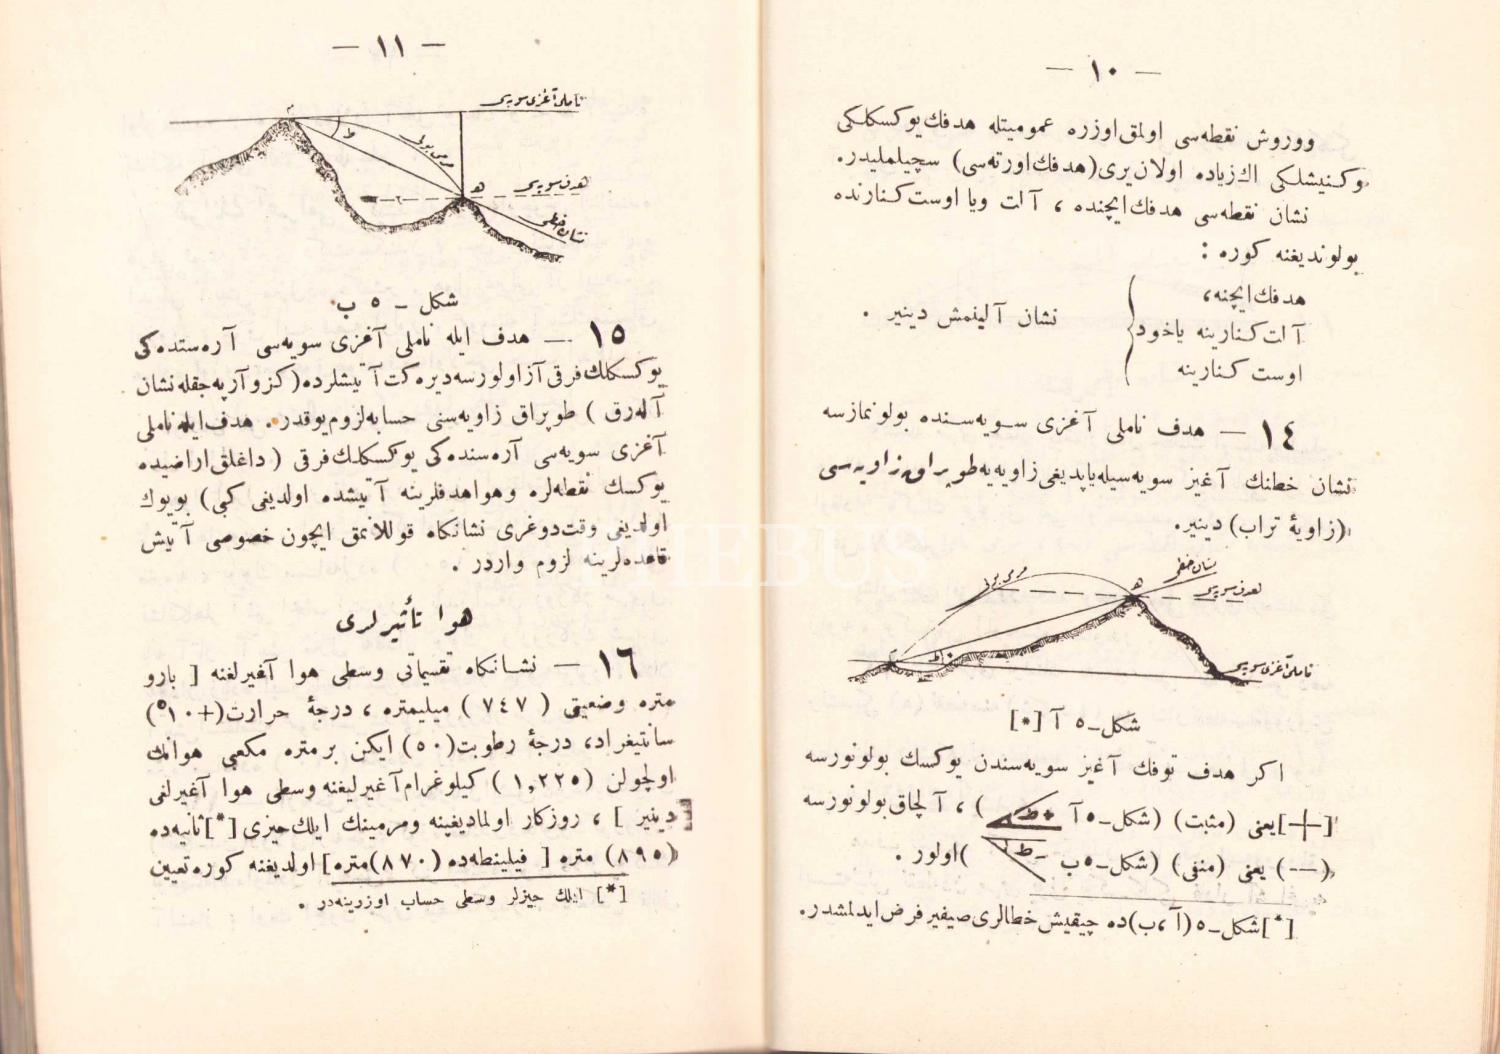 — ١٠ —
ووروش نقطه‌سی اولمق اوزره عمومیتله هدفك یوكسكلكی
وكنیشلكی اك زیاده اولان یری (هدفك اورته‌سی) سچیلملیدر.
نشان نقطه‌سی هدفك ایچنده ، آلت ویا اوست كنارنده
بولوندیغنه كوره :
هدفك ایچنه،
آلت كنارینه یاخود
اوست كنارینه
نشان آلینمش دینیر .
١٤ — هدف ناملی آغزی سویه‌سنده بولونمازسه
نشان خطنك آغیز سویه‌سیله یاپدیغی زاویه‌یه طوپراق زاویه‌سی
(زاویهٔ تراب) دینیر.
نشان خطی
هدف سویه‌سی
مرمی یولی
ه
ط
ناملی آغزی سویه‌سی
شكل ـ ٥ آ [*]
اكر هدف توفك آغیز سویه‌سندن یوكسك بولونورسه
[+] یعنی (مثبت) (شكل ـ ٥ آ + ط) ، آلچاق بولونورسه
(—) یعنی (منفی) (شكل ـ ٥ ب − ط) اولور .
[*] شكل ـ ٥ (آ ، ب) ده چیقیش خطالری صیفیر فرض ایدلمشدر.
— ١١ —
ناملی آغزی سویه‌سی
ط
مرمی یولی
ه
هدف سویه‌سی
نشان خطی
شكل ـ ٥ ب
١٥ — هدف ایله ناملی آغزی سویه‌سی آره‌سنده‌كی
یوكسكلك فرقی آز اولورسه دیره‌كت آتیشلرده (كز و آرپه‌جقله نشان
آله‌رق ) طوپراق زاویه‌سنی حسابه لزوم یوقدر. هدف ایله ناملی
آغزی سویه‌سی آره‌سنده‌كی یوكسكلك فرقی ( داغلق اراضیده
یوكسك نقطه‌لره وهوا هدفلرینه آتیشده اولدیغی كبی) بویوك
اولدیغی وقت دوغری نشانكاه قوللانمق ایچون خصوصی آتیش
قاعده‌لرینه لزوم واردر .
هوا تأثیرلری
١٦ — نشانكاه تقسیماتی وسطی هوا آغیرلغنه [ بارو
متره وضعیتی ( ٧٤٧ ) میلیمتره ، درجهٔ حرارت (+١٠°)
سانتیغراد، درجهٔ رطوبت (٥٠) ایكن بر متره مكعبی هوانك
اولچولن (١,٢٢٥ ) كیلوغرام آغیرلیغنه وسطی هوا آغیرلغی
دینیر ] ، روزكار اولمادیغینه ومرمینك ایلك حیزی [*] ثانیه‌ده
(٨٩٥) متره [ فیلینطه‌ده (٨٧٠) متره] اولدیغنه كوره تعیین
[*] ایلك حیزلر وسطی حساب اوزرینه‌در .
PHEBUS